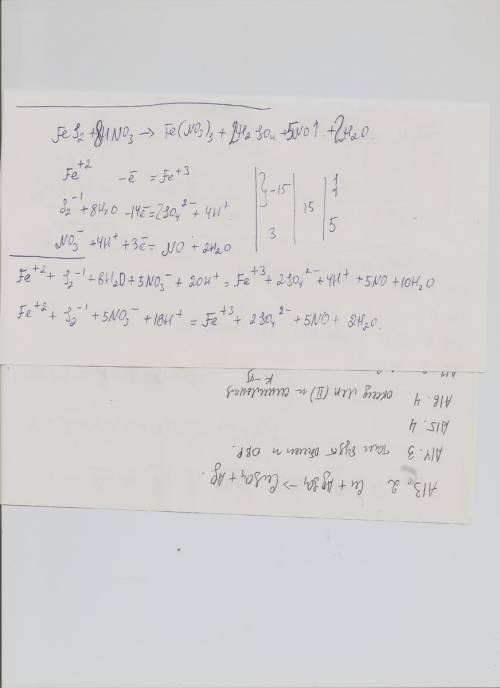 FeS₂ + 8HNO₃ → Fe(NO₃)₃ + 2H₂SO₄ + 5NO↑ + 2H₂O
Fe⁺² - ē = Fe⁺³ | } -15 | | 1
S₂⁻¹ + 8H₂O - 14ē = 2SO₄²⁻ + 4H⁺. | | 15 | 1
NO₃⁻ + 4H⁺ + 3ē = NO + 2H₂O | 3 | | 5
Fe⁺² + S₂⁻¹ + 8H₂O + 5NO₃⁻ + 20H⁺ = Fe⁺³ + 2SO₄²⁻ + 4H⁺ + 5NO + 10H₂O
Fe⁺² + S₂⁻¹ + 5NO₃⁻ + 16H⁺ = Fe⁺³ + 2SO₄²⁻ + 5NO + 2H₂O.
A13. 2 Cu + AgSO₄ → CuSO₄ + Ag.
A14. 3 там будет обмен и ОВР.
A15. 4
A16. 4 оксид (II) и